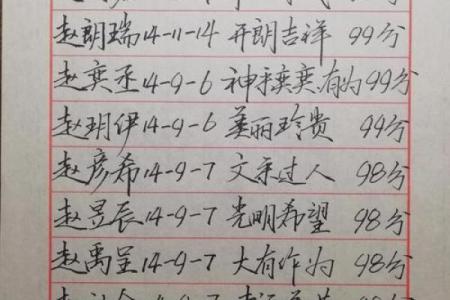 赵朗瑞14-11-14 开朗吉祥 99分
赵奕丞14-9-6 神采奕奕,有为99分
赵玥伊14-9-6 美丽珍贵 99分
赵彦希14-9-7 文采过人 98分
赵昱辰14-9-7 光明希望 98分
赵禹呈14-9-7 大有作为 98分